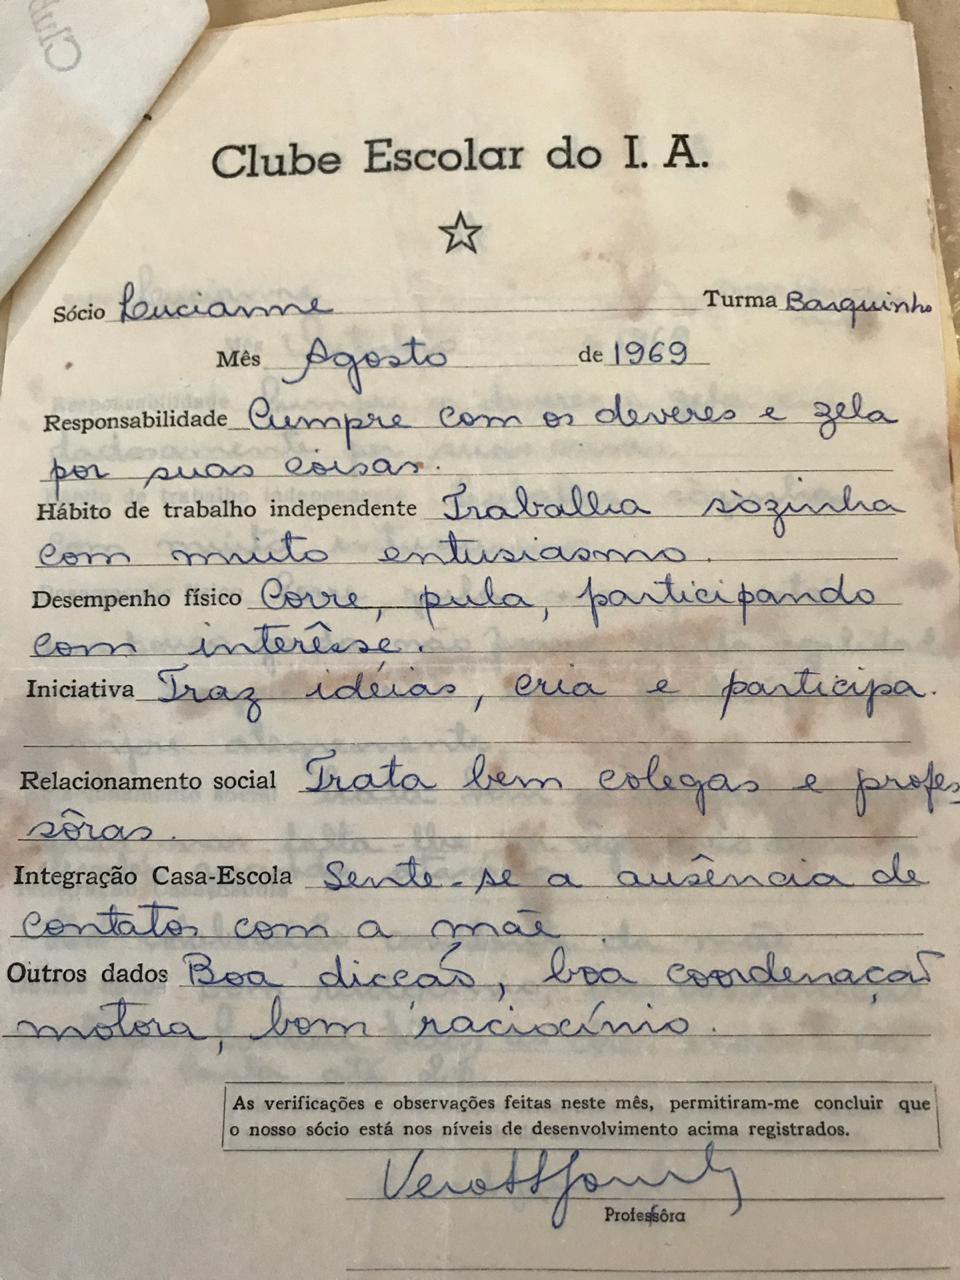 Club
Clube Escolar do I. A.
Sócio Lucianne Turma Barquinho
Mês Agosto de 1969
Responsabilidade Cumpre com os deveres e zela
por suas coisas.
Hábito de trabalho independente Trabalha sòzinha
com muito entusiasmo.
Desempenho físico Corre, pula, participando
com interêsse.
Iniciativa Traz idéias, cria e participa.
Relacionamento social Trata bem colegas e profes
sôras.
Integração Casa-Escola Sente-se a ausência de
contatos com a mãe.
Outros dados Boa dicção, boa coordenação
motora, bom raciocínio.
As verificações e observações feitas neste mês, permitiram-me concluir que
o nosso sócio está nos níveis de desenvolvimento acima registrados.
Professôra